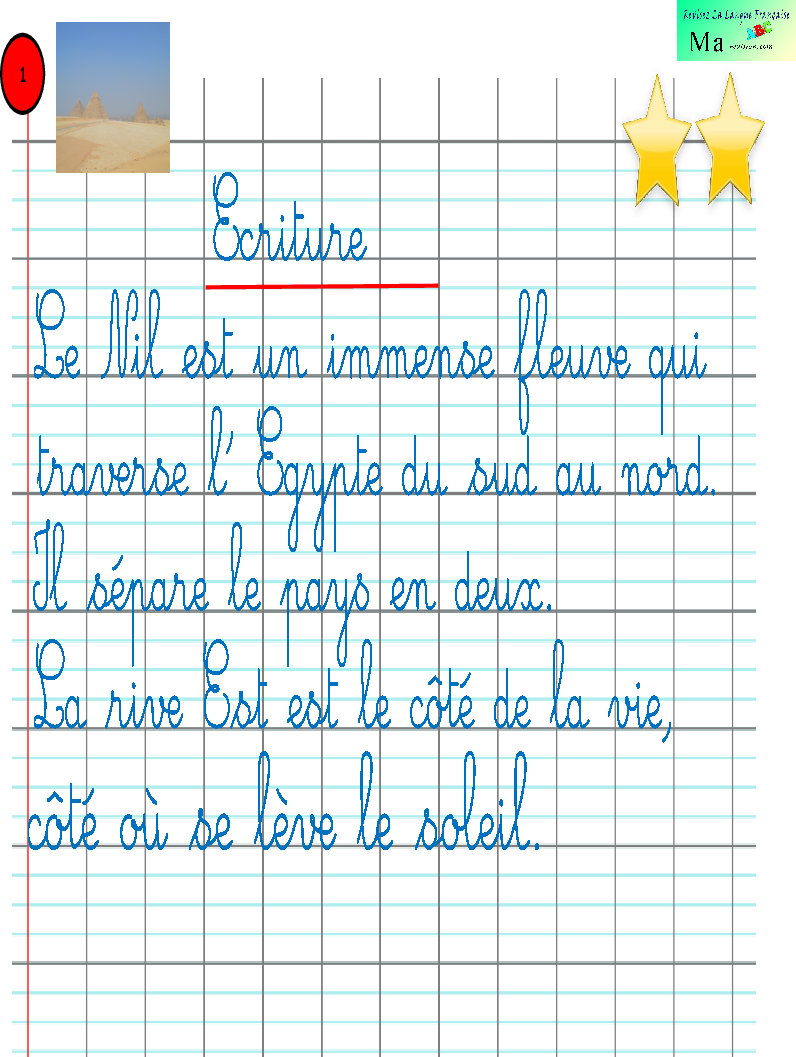 Revisez La Langue Française
Ma
1
Ecriture
Le Nil est un immense fleuve qui
traverse l' Egypte du sud au nord.
Il sépare le pays en deux.
La rive Est est le côté de la vie,
côté où se lève le soleil.